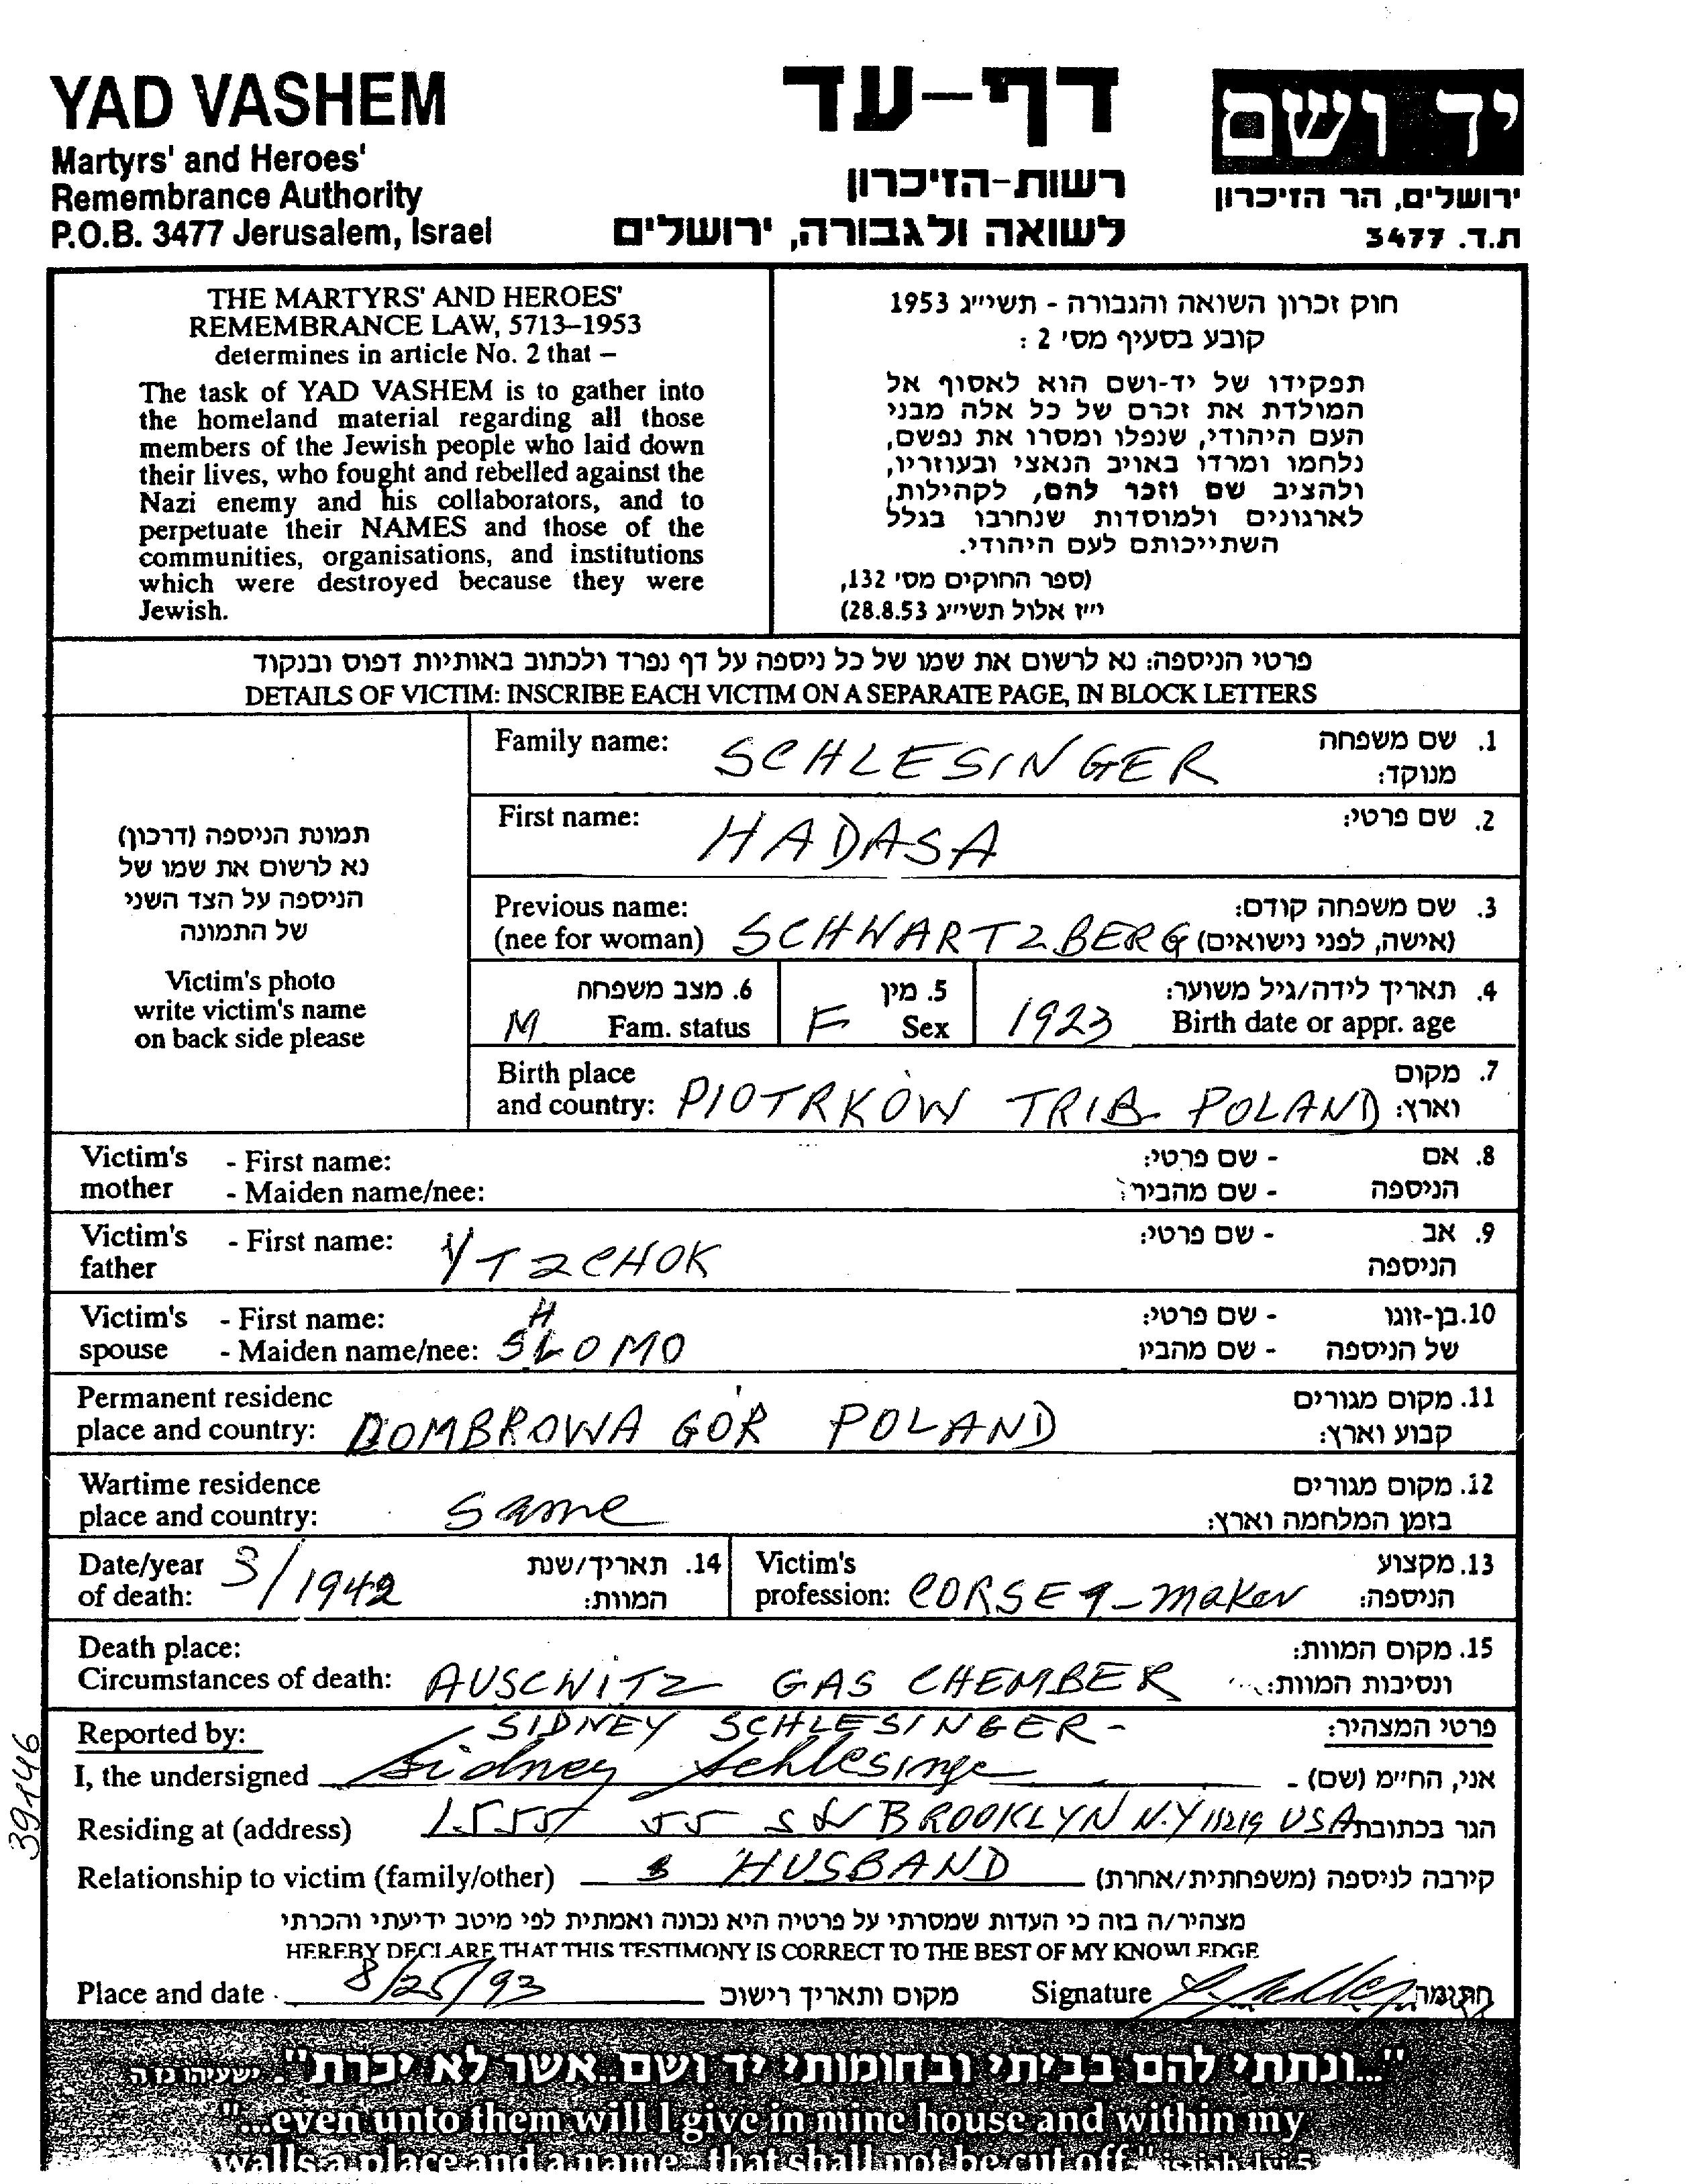 YAD VASHEM
Martyrs' and Heroes'
Remembrance Authority
P.O.B. 3477 Jerusalem, Israel
דף-עד
רשות-הזיכרון
לשואה ולגבורה, ירושלים
יד ושם
ירושלים, הר הזיכרון
ת.ד. 3477
THE MARTYRS' AND HEROES'
REMEMBRANCE LAW, 5713–1953
determines in article No. 2 that –
The task of YAD VASHEM is to gather into
the homeland material regarding all those
members of the Jewish people who laid down
their lives, who fought and rebelled against the
Nazi enemy and his collaborators, and to
perpetuate their NAMES and those of the
communities, organisations, and institutions
which were destroyed because they were
Jewish.
חוק זכרון השואה והגבורה - תשי״ג 1953
קובע בסעיף מס' 2 :
תפקידו של יד-ושם הוא לאסוף אל
המולדת את זכרם של כל אלה מבני
העם היהודי, שנפלו ומסרו את נפשם,
נלחמו ומרדו באויב הנאצי ובעוזריו,
ולהציב שם וזכר להם, לקהילות,
לארגונים ולמוסדות שנחרבו בגלל
השתייכותם לעם היהודי.
(ספר החוקים מס' 132,
י״ז אלול תשי״ג 28.8.53)
פרטי הניספה: נא לרשום את שמו של כל ניספה על דף נפרד ולכתוב באותיות דפוס ובנקוד
DETAILS OF VICTIM: INSCRIBE EACH VICTIM ON A SEPARATE PAGE, IN BLOCK LETTERS
תמונת הניספה (דרכון)
נא לרשום את שמו של
הניספה על הצד השני
של התמונה
Victim's photo
write victim's name
on back side please
Family name: SCHLESINGER 1. שם משפחה
מנוקד:
First name: HADASA 2. שם פרטי:
Previous name: 3. שם משפחה קודם:
(nee for woman) SCHWARTZBERG (אישה, לפני נישואים)
6. מצב משפחה 5. מין 4. תאריך לידה/גיל משוער:
M Fam. status F Sex 1923 Birth date or appr. age
Birth place 7. מקום
and country: PIOTRKOW TRIB POLAND וארץ:
Victim's - First name: - שם פרטי: 8. אם
mother - Maiden name/nee: - שם מהבית: הניספה
Victim's - First name: YTZCHOK - שם פרטי: 9. אב
father הניספה
Victim's - First name: H - שם פרטי: 10. בן-זוגו
spouse - Maiden name/nee: SLOMO - שם מהביו של הניספה
Permanent residenc 11. מקום מגורים
place and country: DOMBROWA GÓR POLAND קבוע וארץ:
Wartime residence 12. מקום מגורים
place and country: same בזמן המלחמה וארץ:
Date/year 3/1942 14. תאריך/שנת
of death: המוות:
Victim's 13. מקצוע
profession: CORSET-maker הניספה:
Death place: 15. מקום המוות:
Circumstances of death: AUSCWITZ GAS CHEMBER ונסיבות המוות:
Reported by: SIDNEY SCHLESINGER- פרטי המצהיר:
I, the undersigned Sidney Schlesinge אני, החיי״מ (שם) -
Residing at (address) 1555 55 St BROOKLYN N.Y 11219 USA הגר בכתובת
Relationship to victim (family/other) HUSBAND קירבה לניספה (משפחתית/אחרת)
מצהיר/ה בזה כי העדות שמסרתי על פרטיה היא נכונה ואמתית לפי מיטב ידיעתי והכרתי
HEREBY DECLARE THAT THIS TESTIMONY IS CORRECT TO THE BEST OF MY KNOWLEDGE
Place and date 8/25/93 מקום ותאריך רישום Signature חתימה
39146
"...ונתתי להם בביתי ובחומותי יד ושם..אשר לא יכרת". ישעיהו נו ה
"...even unto them will I give in mine house and within my
walls a place and a name...that shall not be cut off." isaiah lvi 5